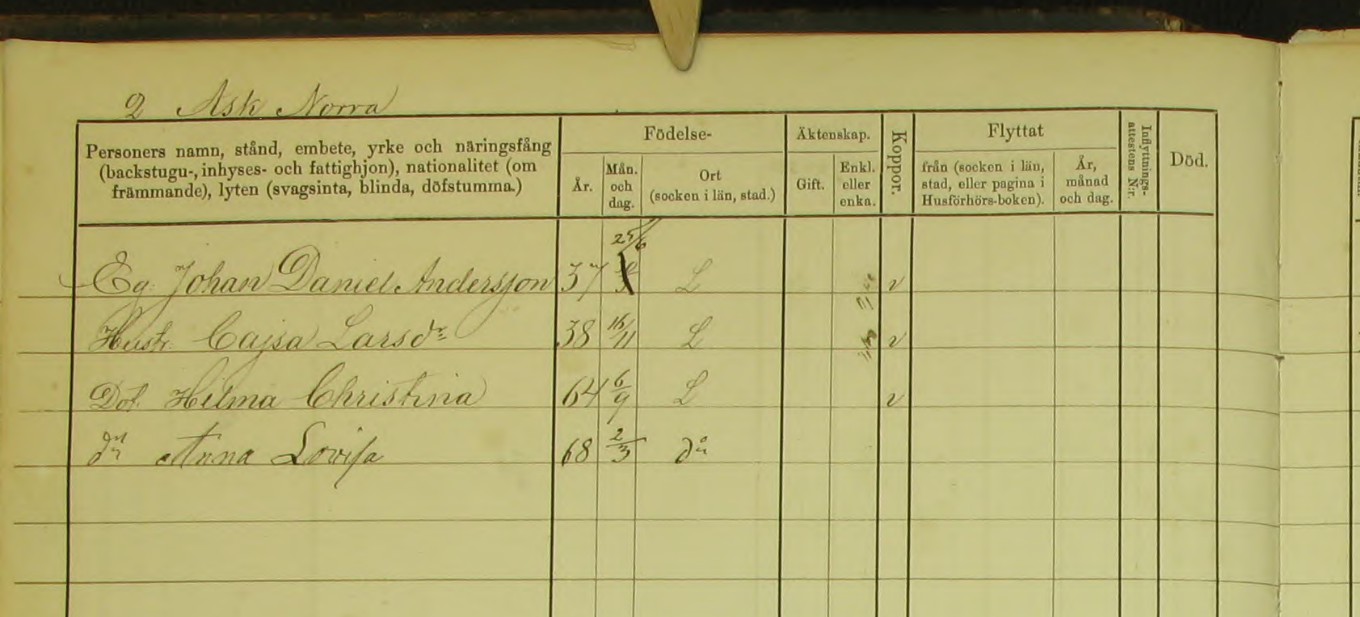 2 Ask Norra
Personers namn, stånd, embete, yrke och näringsfång
(backstugu-, inhyses- och fattighjon), nationalitet (om
främmande), lyten (svagsinta, blinda, döfstumma.)
Födelse-
År.
Mån. och dag.
Ort
(socken i län, stad.)
Äktenskap.
Gift.
Enkl. eller enka.
Koppor.
Flyttat
från (socken i län,
stad, eller pagina i
Husförhörs-boken).
År,
månad
och dag.
Inflyttnings-
attestens N:r.
Död.
Eg. Johan Daniel Andersson 37 25/6 L v
Hustr. Cajsa Larsdr 38 16/11 L v
Dot. Hilma Christina 64 6/9 L v
do Anna Lovisa 68 2/3 do